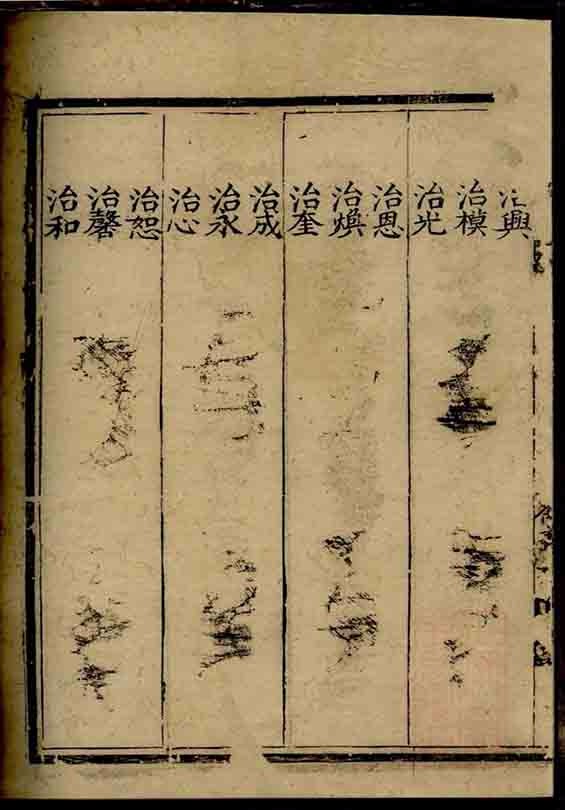 治興
治模
治光
治恩
治煥
治奎
治成
治永
治心
治恕
治馨
治和